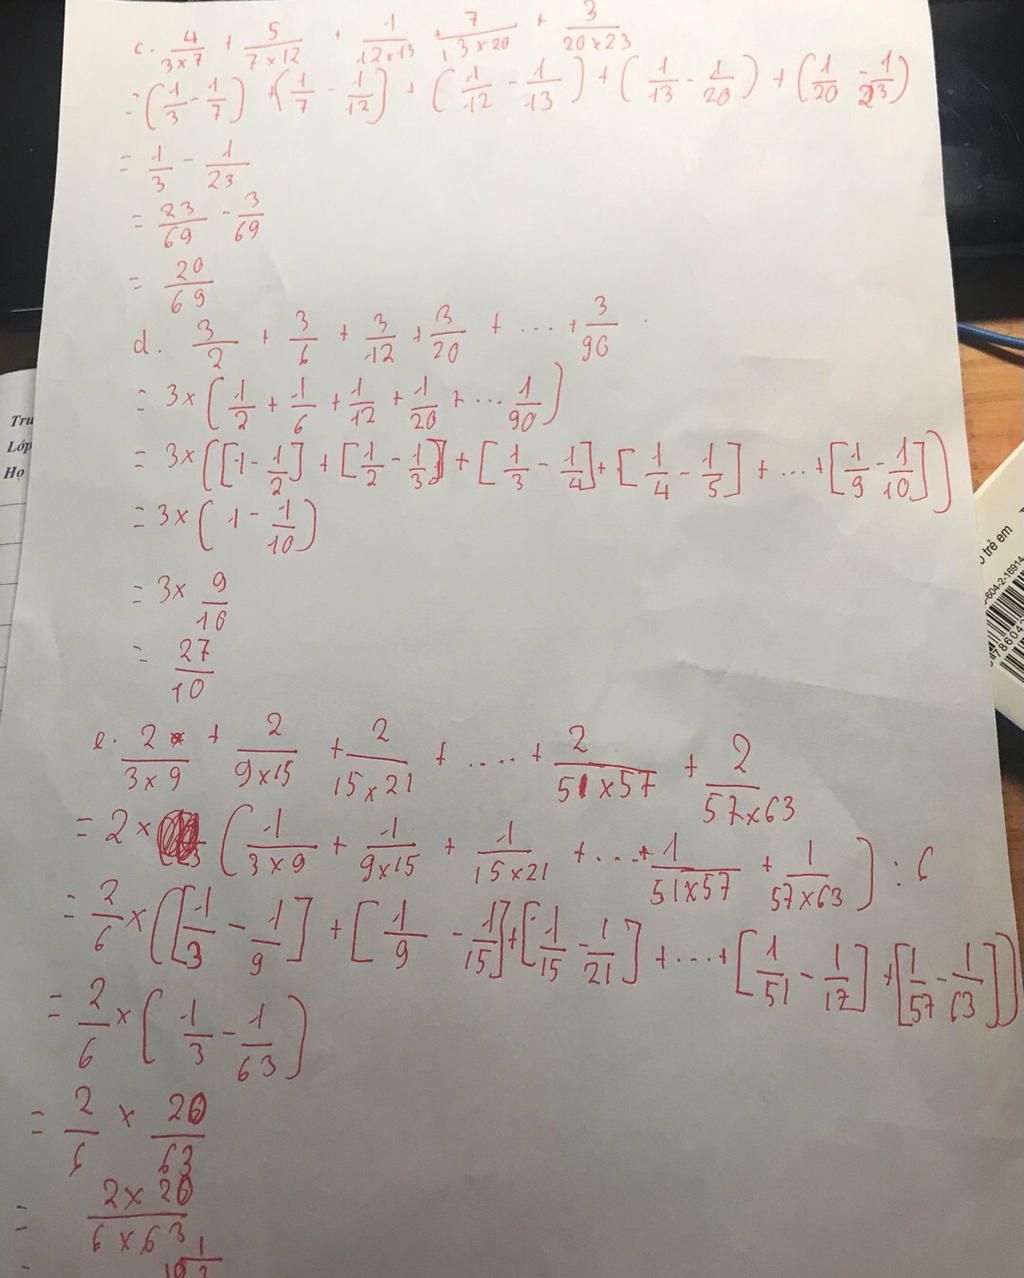 c. 4/(3×7) + 5/(7×12) + 1/(12×13) + 7/(13×20) + 3/(20×23)
= (1/3 - 1/7) + (1/7 - 1/12) + (1/12 - 1/13) + (1/13 - 1/20) + (1/20 - 1/23)
= 1/3 - 1/23
= 23/69 - 3/69
= 20/69
d. 3/2 + 3/6 + 3/12 + 3/20 + ... + 3/90
= 3×(1/2 + 1/6 + 1/12 + 1/20 + ... 1/90)
= 3×([1 - 1/2] + [1/2 - 1/3] + [1/3 - 1/4] + [1/4 - 1/5] + ... + [1/9 - 1/10])
= 3×(1 - 1/10)
= 3× 9/10
= 27/10
e. 2/(3×9) + 2/(9×15) + 2/(15×21) + .... + 2/(51×57) + 2/(57×63)
= 2×(1/(3×9) + 1/(9×15) + 1/(15×21) + ... + 1/(51×57) + 1/(57×63)) : 6
= 2/6 ×([1/3 - 1/9] + [1/9 - 1/15] + [1/15 - 1/21] + ... + [1/51 - 1/17] + [1/57 - 1/63])
= 2/6 × (1/3 - 1/63)
= 2/6 × 20/63
= (2×20)/(6×63)
=
Trư
Lớp
Họ
trẻ em
604-2-16914